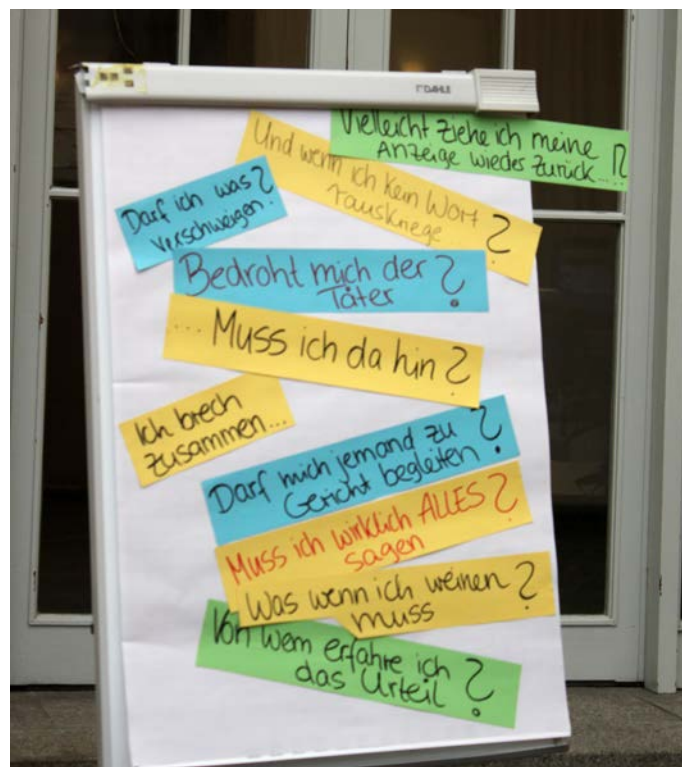 DAHLE
Vielleicht ziehe ich meine
Anzeige wieder zurück....!?
Und wenn ich kein Wort
rauskriege ?
Darf ich was ?
verschweigen.
Bedroht mich der ?
Täter
... Muss ich da hin ?
Ich brech
zusammen...
Darf mich jemand zu ?
Gericht begleiten
Muss ich wirklich ALLES ?
sagen
Was wenn ich weinen ?
muss
Von wem erfahre ich ?
das Urteil